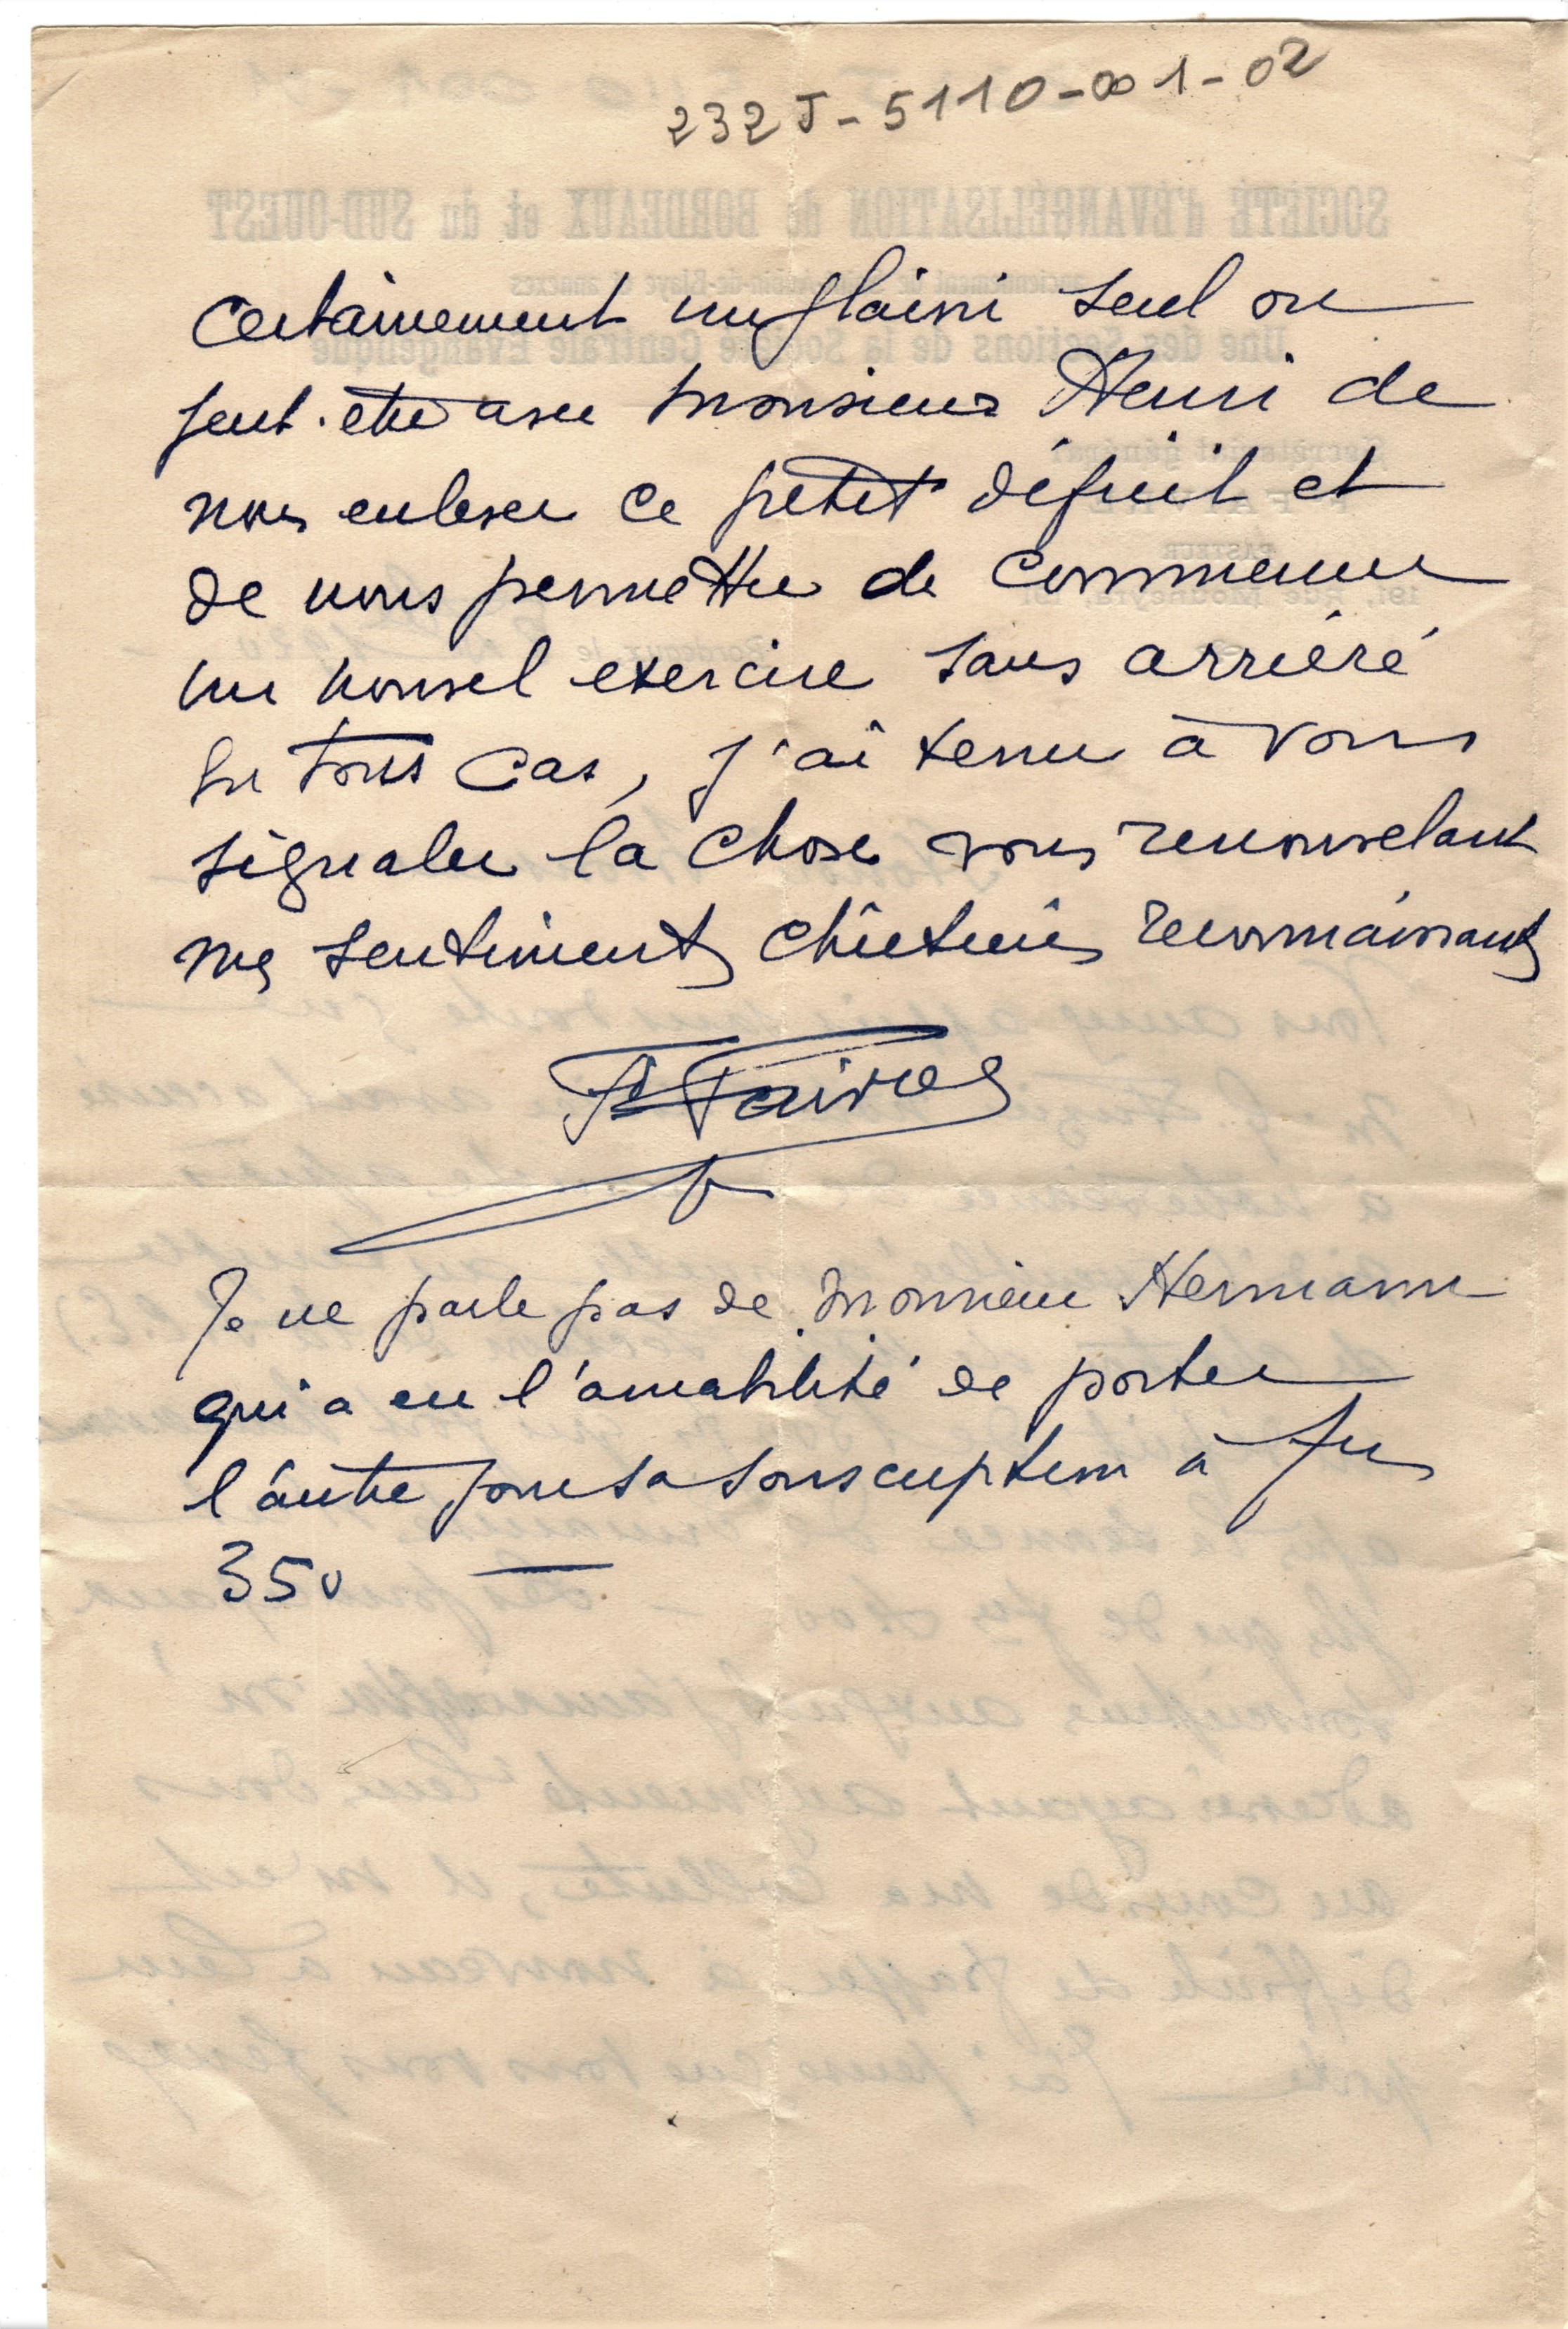 232 J - 5110 - 001 - 02
certainement un plaisir seul ou
peut-être avec Monsieur Henri de
nous enlever ce petit déficit et
de nous permettre de commencer
un nouvel exercice sans arriéré
En tous cas, j'ai tenu à vous
signaler la chose vous renouvelant
mes sentiments chrétiens reconnaissants
Faivre
Je ne parle pas de Monsieur Hermann
qui a eu l'amabilité de porter
l'autre jour sa souscription à frs
350 —